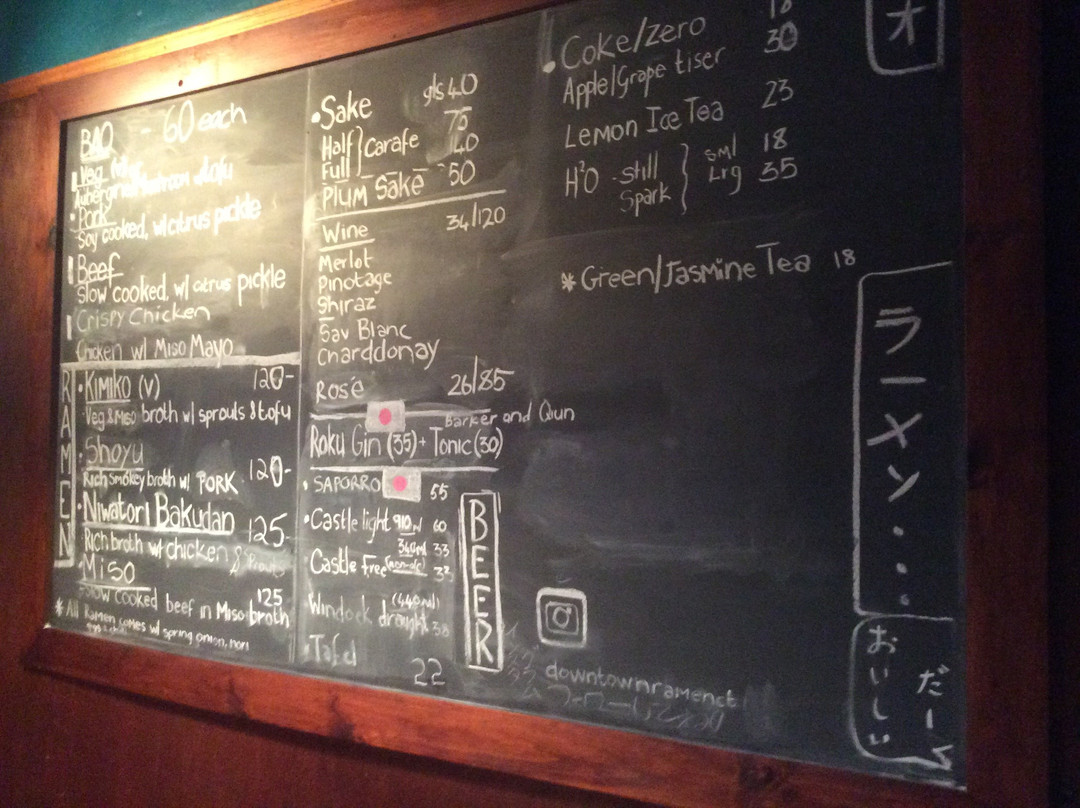 BAO - 60 each
Veg
Aubergine/Mushroom tofu
• Pork
Soy cooked, w/ citrus pickle
Beef
Slow cooked, w/ citrus pickle
Crispy Chicken
Chicken w/ Miso Mayo
RAMEN
• KIMIKO (V) 120-
Veg & Miso broth w/ sprouts & tofu
• Shoyu
Rich smokey broth w/ PORK 120-
• Niwatori Bakudan 125-
Rich broth w/ chicken &
• Miso
Slow cooked beef in Miso broth 125
* All Ramen comes w/ spring onion, nori
• Sake gls 40
Half } Carafe 70
Full
PLUM Sake 50
Wine 34/120
Merlot
Pinotage
Shiraz
Sav Blanc
Charddonay
Rosé 26/85
Barker and Quin
Roku Gin (35) + Tonic (30)
• SAPORRO 55
BEER
• Castle light 910ml 60
340ml 33
• Castle Free (non-alc) 33
• Windock draught (440ml) 38
• Tafel
22
• Coke/zero 18
Apple/Grape tiser 30
Lemon Ice Tea 23
H²O - still } sml 18
Spark lrg 35
* Green/Jasmine Tea 18
downtownramenct
オ
ラーメン...
おいしい
だー